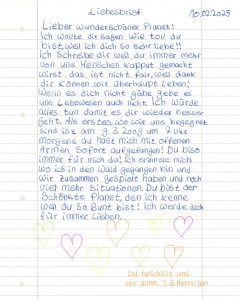 Liebesbrief
10.02.2025
Lieber wunderschöner Planet!
Ich wollte dir sagen wie toll du
bist, weil ich dich so sehr liebe!!
Ich schreibe dir weil du immer mehr
von uns Menschen kapput gemacht
wirst das ist nicht fair, weil dank
dir können wir überhaupt Leben!
Wenn es dich nicht gäbe gebe es
uns Lebewesen auch nicht. Ich würde
alles tun damit es dir wieder besser
geht. Als erstes, wo wir uns begegnet
sind ist am 9.3.2009 um 7 Uhr
morgens du hast mich mit offenen
Armen sofort aufgefangen! Du bist
immer für mich da! Ich erinnere mich
wo ich in den Wald gegangen bin und
wir zusammen gespielt haben und noch
viel mehr Situationen. Du bist der
schönste Planet, den ich kenne
weil du so Bunt bist! Ich werde dich
für immer Lieben.
Du beschützt uns
vor allem z.B. Meteoriten